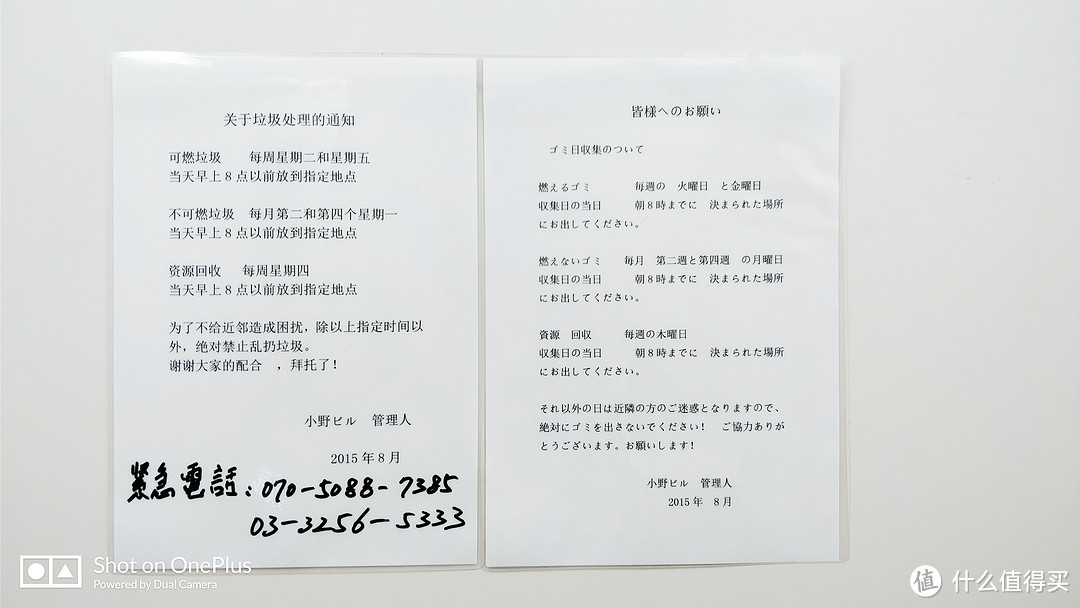 关于垃圾处理的通知
可燃垃圾 每周星期二和星期五
当天早上8点以前放到指定地点
不可燃垃圾 每月第二和第四个星期一
当天早上8点以前放到指定地点
资源回收 每周星期四
当天早上8点以前放到指定地点
为了不给近邻造成困扰，除以上指定时间以
外，绝对禁止乱扔垃圾。
谢谢大家的配合 ，拜托了！
小野ビル 管理人
2015年8月
緊急電話：070-5088-7385
03-3256-5333
皆様へのお願い
ゴミ日収集のついて
燃えるゴミ 毎週の 火曜日 と金曜日
収集日の当日 朝8時までに 決まられた場所
にお出してください。
燃えないゴミ 毎月 第二週と第四週 の月曜日
収集日の当日 朝8時までに 決まられた場所
にお出してください。
資源 回収 毎週の木曜日
収集日の当日 朝8時までに 決まられた場所
にお出してください。
それ以外の日は近隣の方のご迷惑となりますので、
絶対にゴミを出さないでください！ ご協力ありが
とうございます。お願いします！
小野ビル 管理人
2015年 8月
Shot on OnePlus
Powered by Dual Camera
值 什么值得买